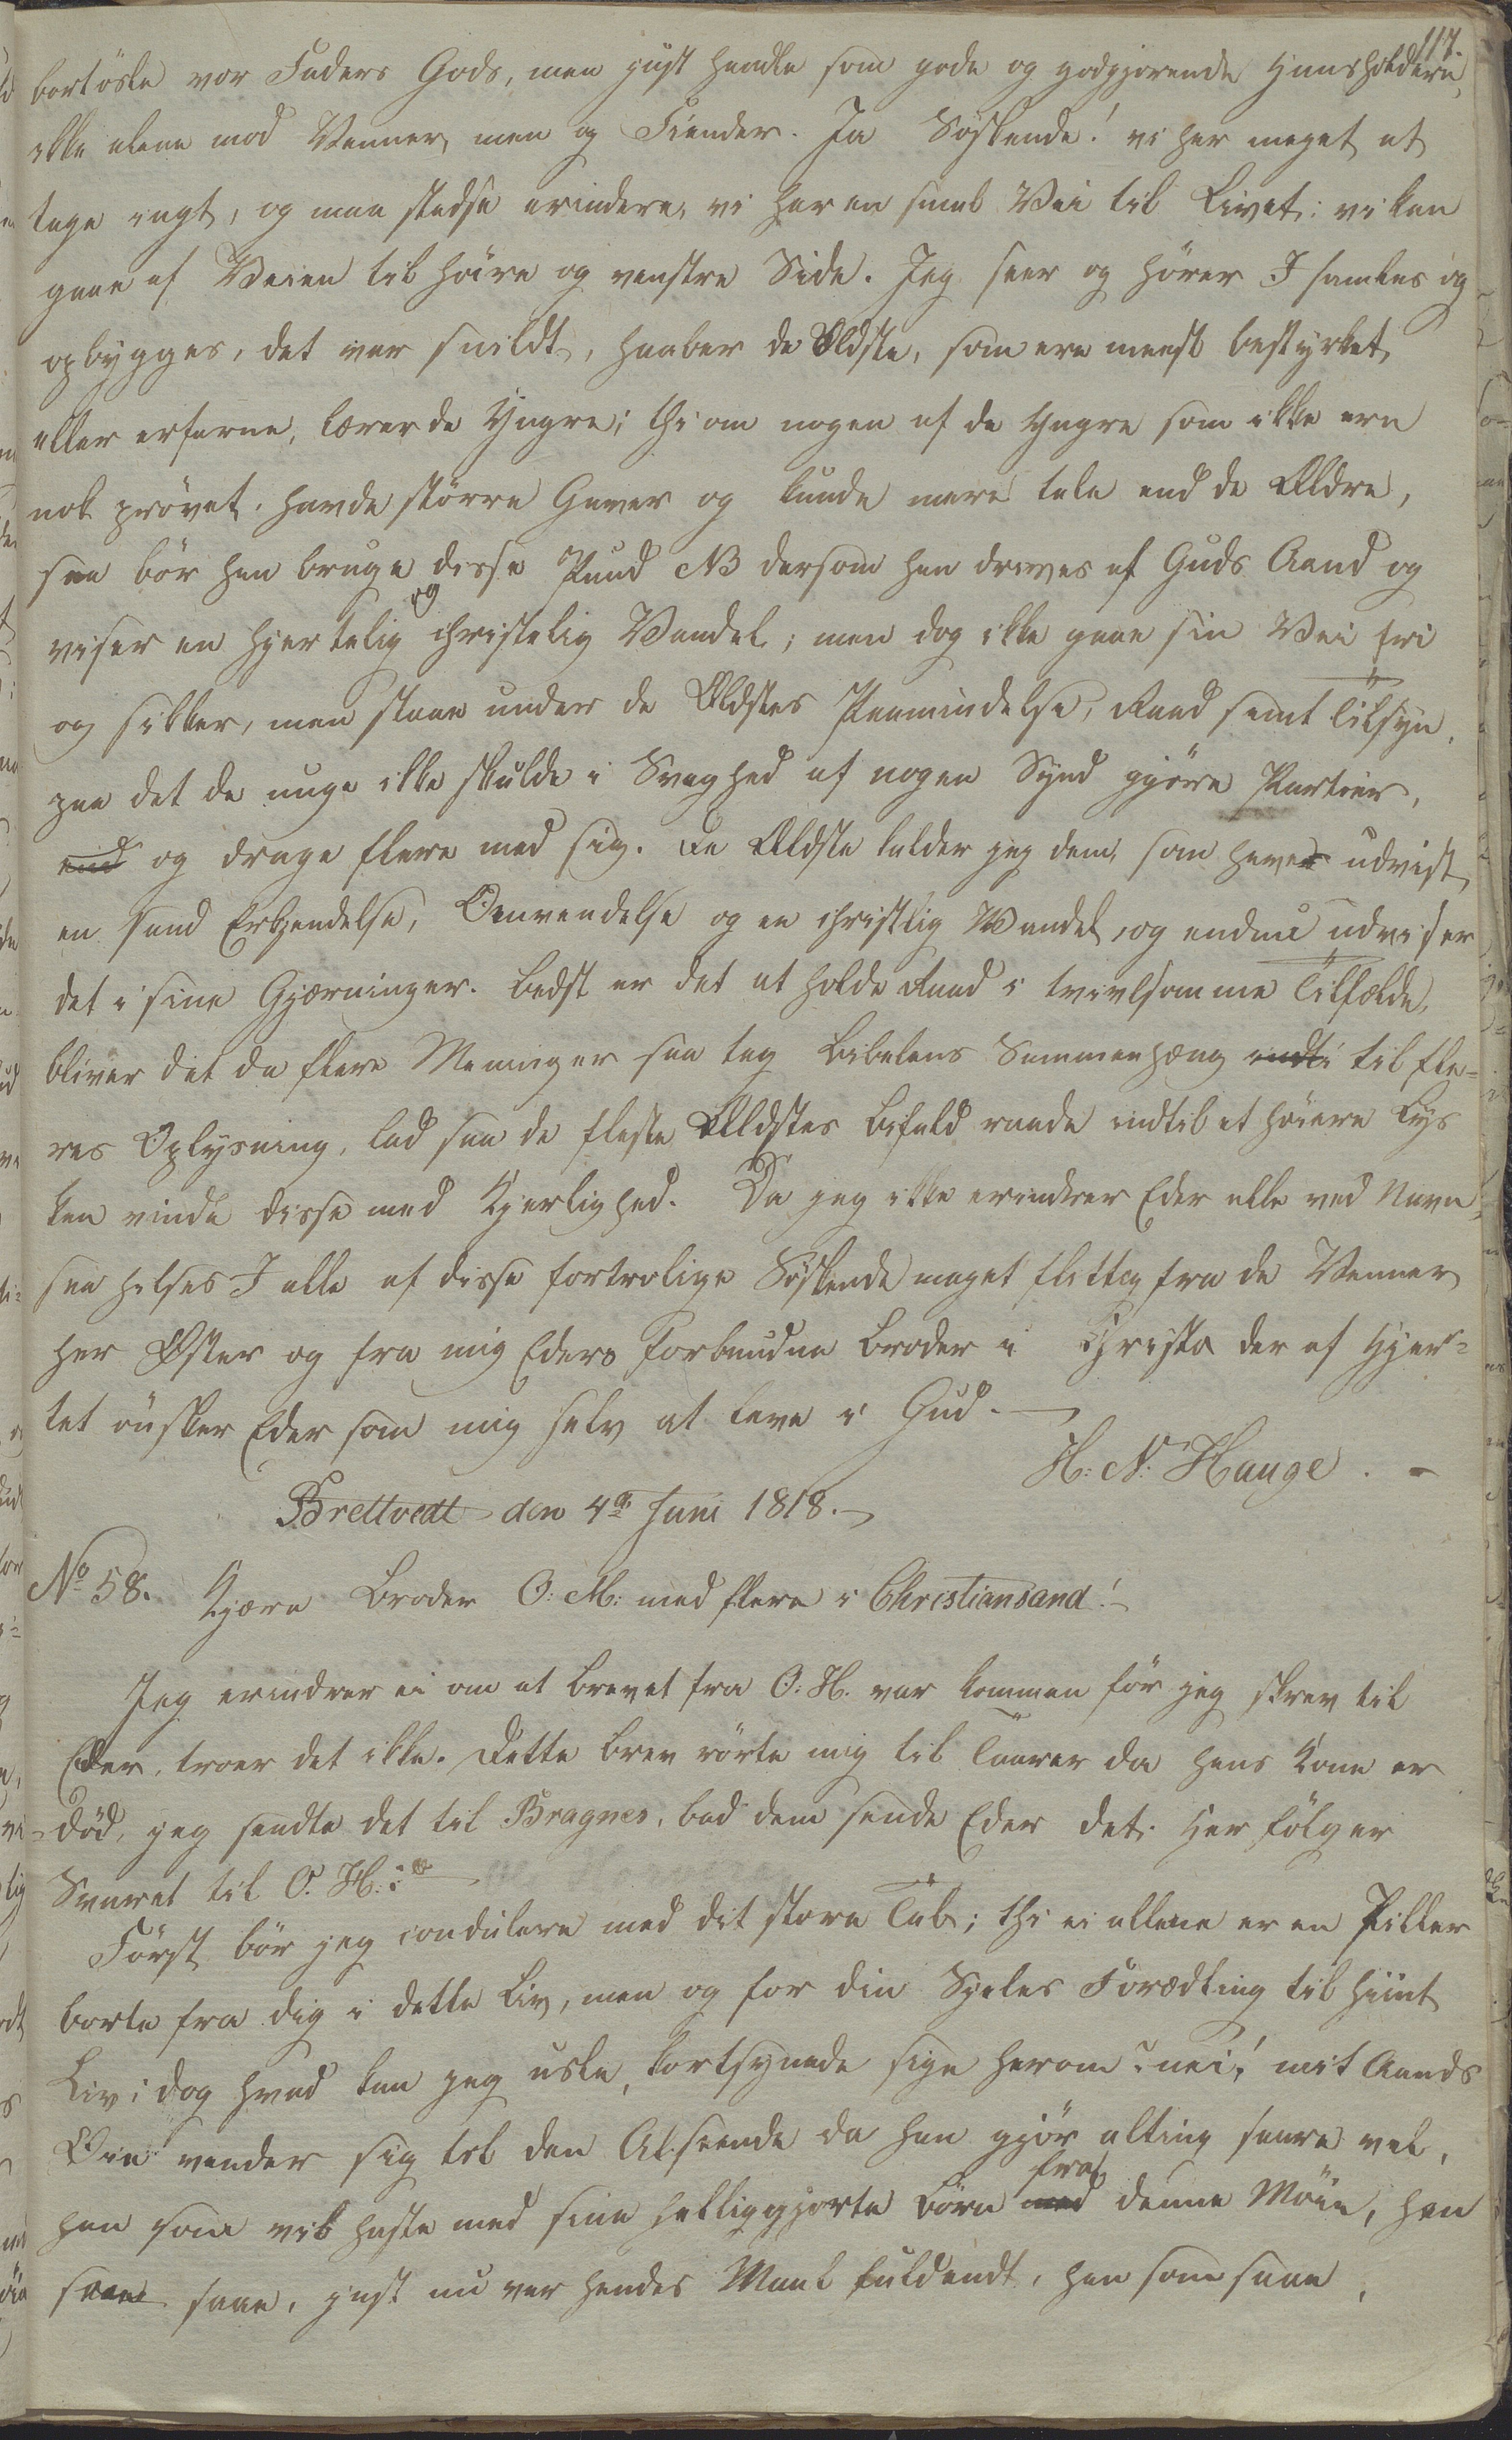 117.
bortösle vor Faders Gods, men just handle som gode og godgjörende Huusholdere,
ikke alene mod Venner, men og Fiender. Ja Söskende! vi har meget at
tage vagt, og maa stedse erindre, vi har en smal Vei til Livet: vi kan
gaae af Veien til höire og venstre Side. Jeg seer og hörer I samles og
opbygges, det var snildt, haaber de Ældste, som ere meest bestyrket
eller erfarne, lærer de Yngre; thi om nogen af de Yngre som ikke ere
nok prövet. havde större Gaver og kunde mere tale end de Ældre,
saa bör han bruge disse Pund NB dersom han drives af Guds Aand og
viser en hjertelig og christelig Vandel; men dog ikke gaae sin Vei fri
og sikker, men staae under de Ældstes Paamindelse, Raad samt Tilsyn,
paa det de unge ikke skulde i Svaghed af nogen Synd gjöre Partier,
end og drage flere med sig. De Ældste kalder jeg dem, som haver udvist
en sand Erkjendelse, Omvendelse og en christlig Vandel, og endnu udviser
det i sine Gjærninger. Bedst er det at holde Raad i tvivlsomme Tilfælde,
bliver det da flere Meninger saa tag Bibelens Sammenhæng indti til fle-
res Oplysning, lad saa de fleste Ældstes Bifald raade indtil et höiere Lys
kan vinde disse med Kjerlighed. Da jeg ikke erindrer Eder alle ved Navn,
saa hilses I alle af disse fortrolige Söskende meget flittig fra de Venner
her Öster og fra mig Eders Forbundne Broder i Christo der af Hjer-
tet önsker Eder som mig selv at leve i Gud.
H: N: Hauge.
Brettvedt den 4de Juni 1818.
No 58. Kjære Broder O: M: med flere i Christiansand!
Jeg erindrer ei om at Brevet fra O: H. var kommen för jeg skrev til
Eder, troer det ikke. Dette Brev rörte mig til Taarer da hans Kone er
död, jeg sendte det til Bragnes, bad dem sende Eder det. Her fölger
Svaret til O. H.:
Först bör jeg condulere med dit store Tab; thi ei allene er en Piller
borte fra dig i dette Liv, men og for din Sjeles Forædling til hiint
Liv; dog hvad kan jeg usle, kortsynede sige herom? nei! mit Aands
Öie vender sig til den Alseende da han gjör alting saare vel,
han som vil haste med sine helliggjorte Börn med fra denne Möie, han
saae saae, just nu var hendes Maal fuldendt, han som saae,